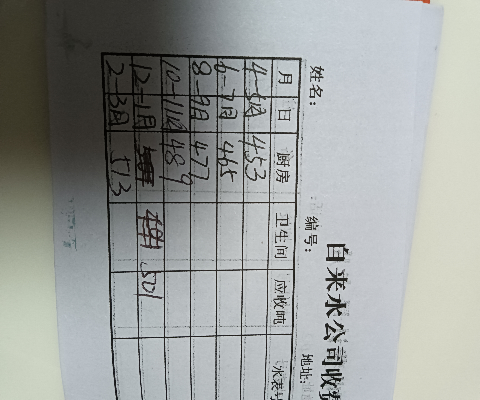 自来水公司收费
姓名： 编号： 地址：
月 日 厨房 卫生间 应收吨 水表
4-5月 453
6-7月 465
8-9月 477
10-11月 489
12-1月 501
2-3月 513